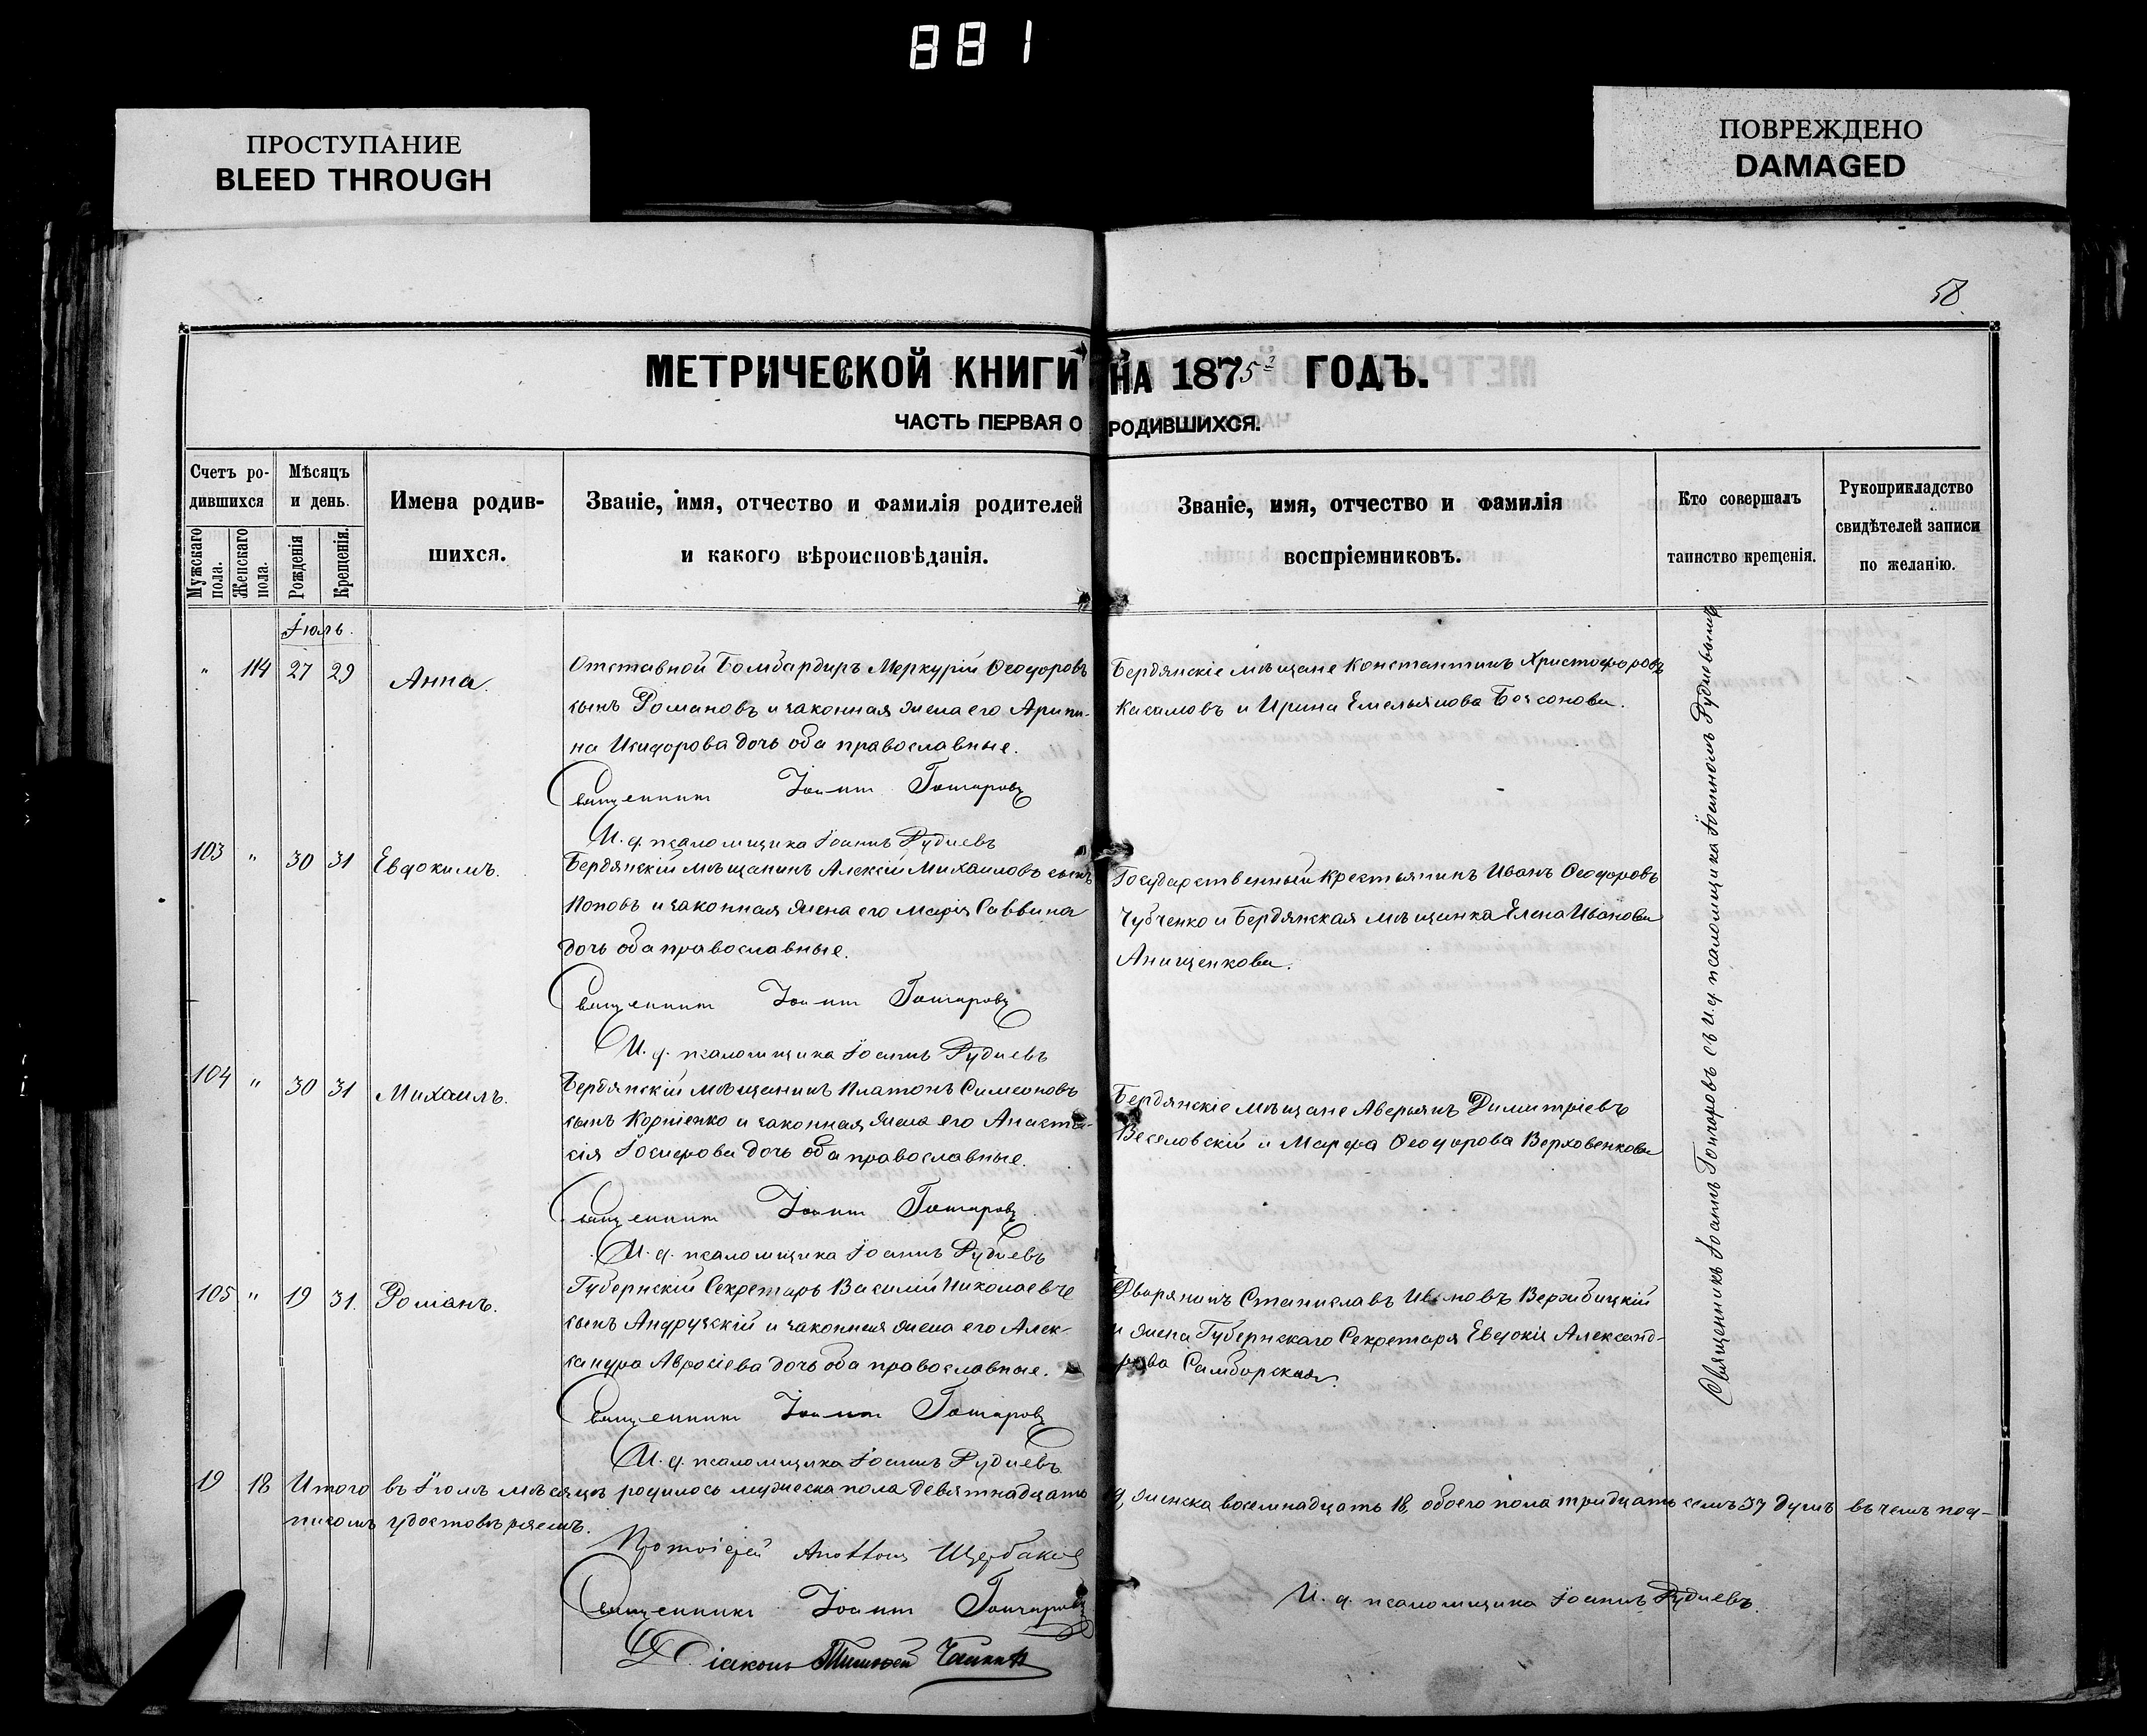 881
ПРОСТУПАНИЕ
BLEED THROUGH
ПОВРЕЖДЕНО
DAMAGED
58
МЕТРИЧЕСКОЙ КНИГИ НА 1875 ГОДЪ.
ЧАСТЬ ПЕРВАЯ О РОДИВШИХСЯ.
Счетъ ро-
дившихся
Мужскаго пола.
Женскаго пола.
Мѣсяцъ
и день.
Рожденія
Крещенія.
Имена родив-
шихся.
Званіе, имя, отчество и фамилія родителей
и какого вѣроисповѣданія.
Званіе, имя, отчество и фамилія
воспріемниковъ.
Кто совершалъ
таинство крещенія.
Рукоприкладство
свидѣтелей записи
по желанію.
Іюль.
" 114 27 29 Анна.
Отставной Бомбардиръ Меркурій Ѳеодоровъ
сынъ Романовъ и законная жена его Арипи-
на Исидорова дочь оба православные.
Священникъ Іоаннъ Гончаровъ
И. д. псаломщика Іоаннъ Рудневъ
Бердянскіе мѣщане Константинъ Христофоровъ
Касимовъ и Ирина Емельянова
103 " 30 31 Евдокимъ.
Бердянскій мѣщанинъ Алексій Михаиловъ сынъ
Поповъ и законная жена его Марія Саввина
дочь оба православные.
Священникъ Іоаннъ Гончаровъ
И. д. псаломщика Іоаннъ Рудневъ
Государственный крестьянинъ Иванъ Ѳеодоровъ
Чубченко и Бердянская мѣщанка Елена Иванова
Анищенкова.
104 " 30 31 Михаилъ.
Бердянскій мѣщанинъ Платонъ Симеоновъ
сынъ Корніенко и законная жена его Анаста-
сія Іосифова дочь оба православные.
Священникъ Іоаннъ Гончаровъ
И. д. псаломщика Іоаннъ Рудневъ
Бердянскіе мѣщане Аверьянъ Димитріевъ
Веселовскій и Марфа Ѳеодорова Верховенкова
105 " 19 31. Романъ.
Губернскій Секретарь Василій Николаевъ
сынъ Андрузскій и законная жена его Алек-
сандра Авксіева дочь оба православные.
Священникъ Іоаннъ Гончаровъ
И. д. псаломщика Іоаннъ Рудневъ
Дворянинъ Станиславъ Ивановъ Вержбицкій
и жена Губернскаго Секретаря Евдокія Александ-
рова Самборская.
Священникъ Іоаннъ Гончаровъ съ и. д. псаломщика Іоанномъ Рудневымъ
19 18 Итого въ Іюлѣ мѣсяцѣ родилось мужеска пола девятнадцать 19, женска восемнадцать 18, обоего пола тридцать семь 37 душъ въ чемъ под-
писомъ удостовѣряемъ.
Протоіерей Щербаковъ
Священникъ Іоаннъ Гончаровъ
Діаконъ
И. д. псаломщика Іоаннъ Рудневъ.